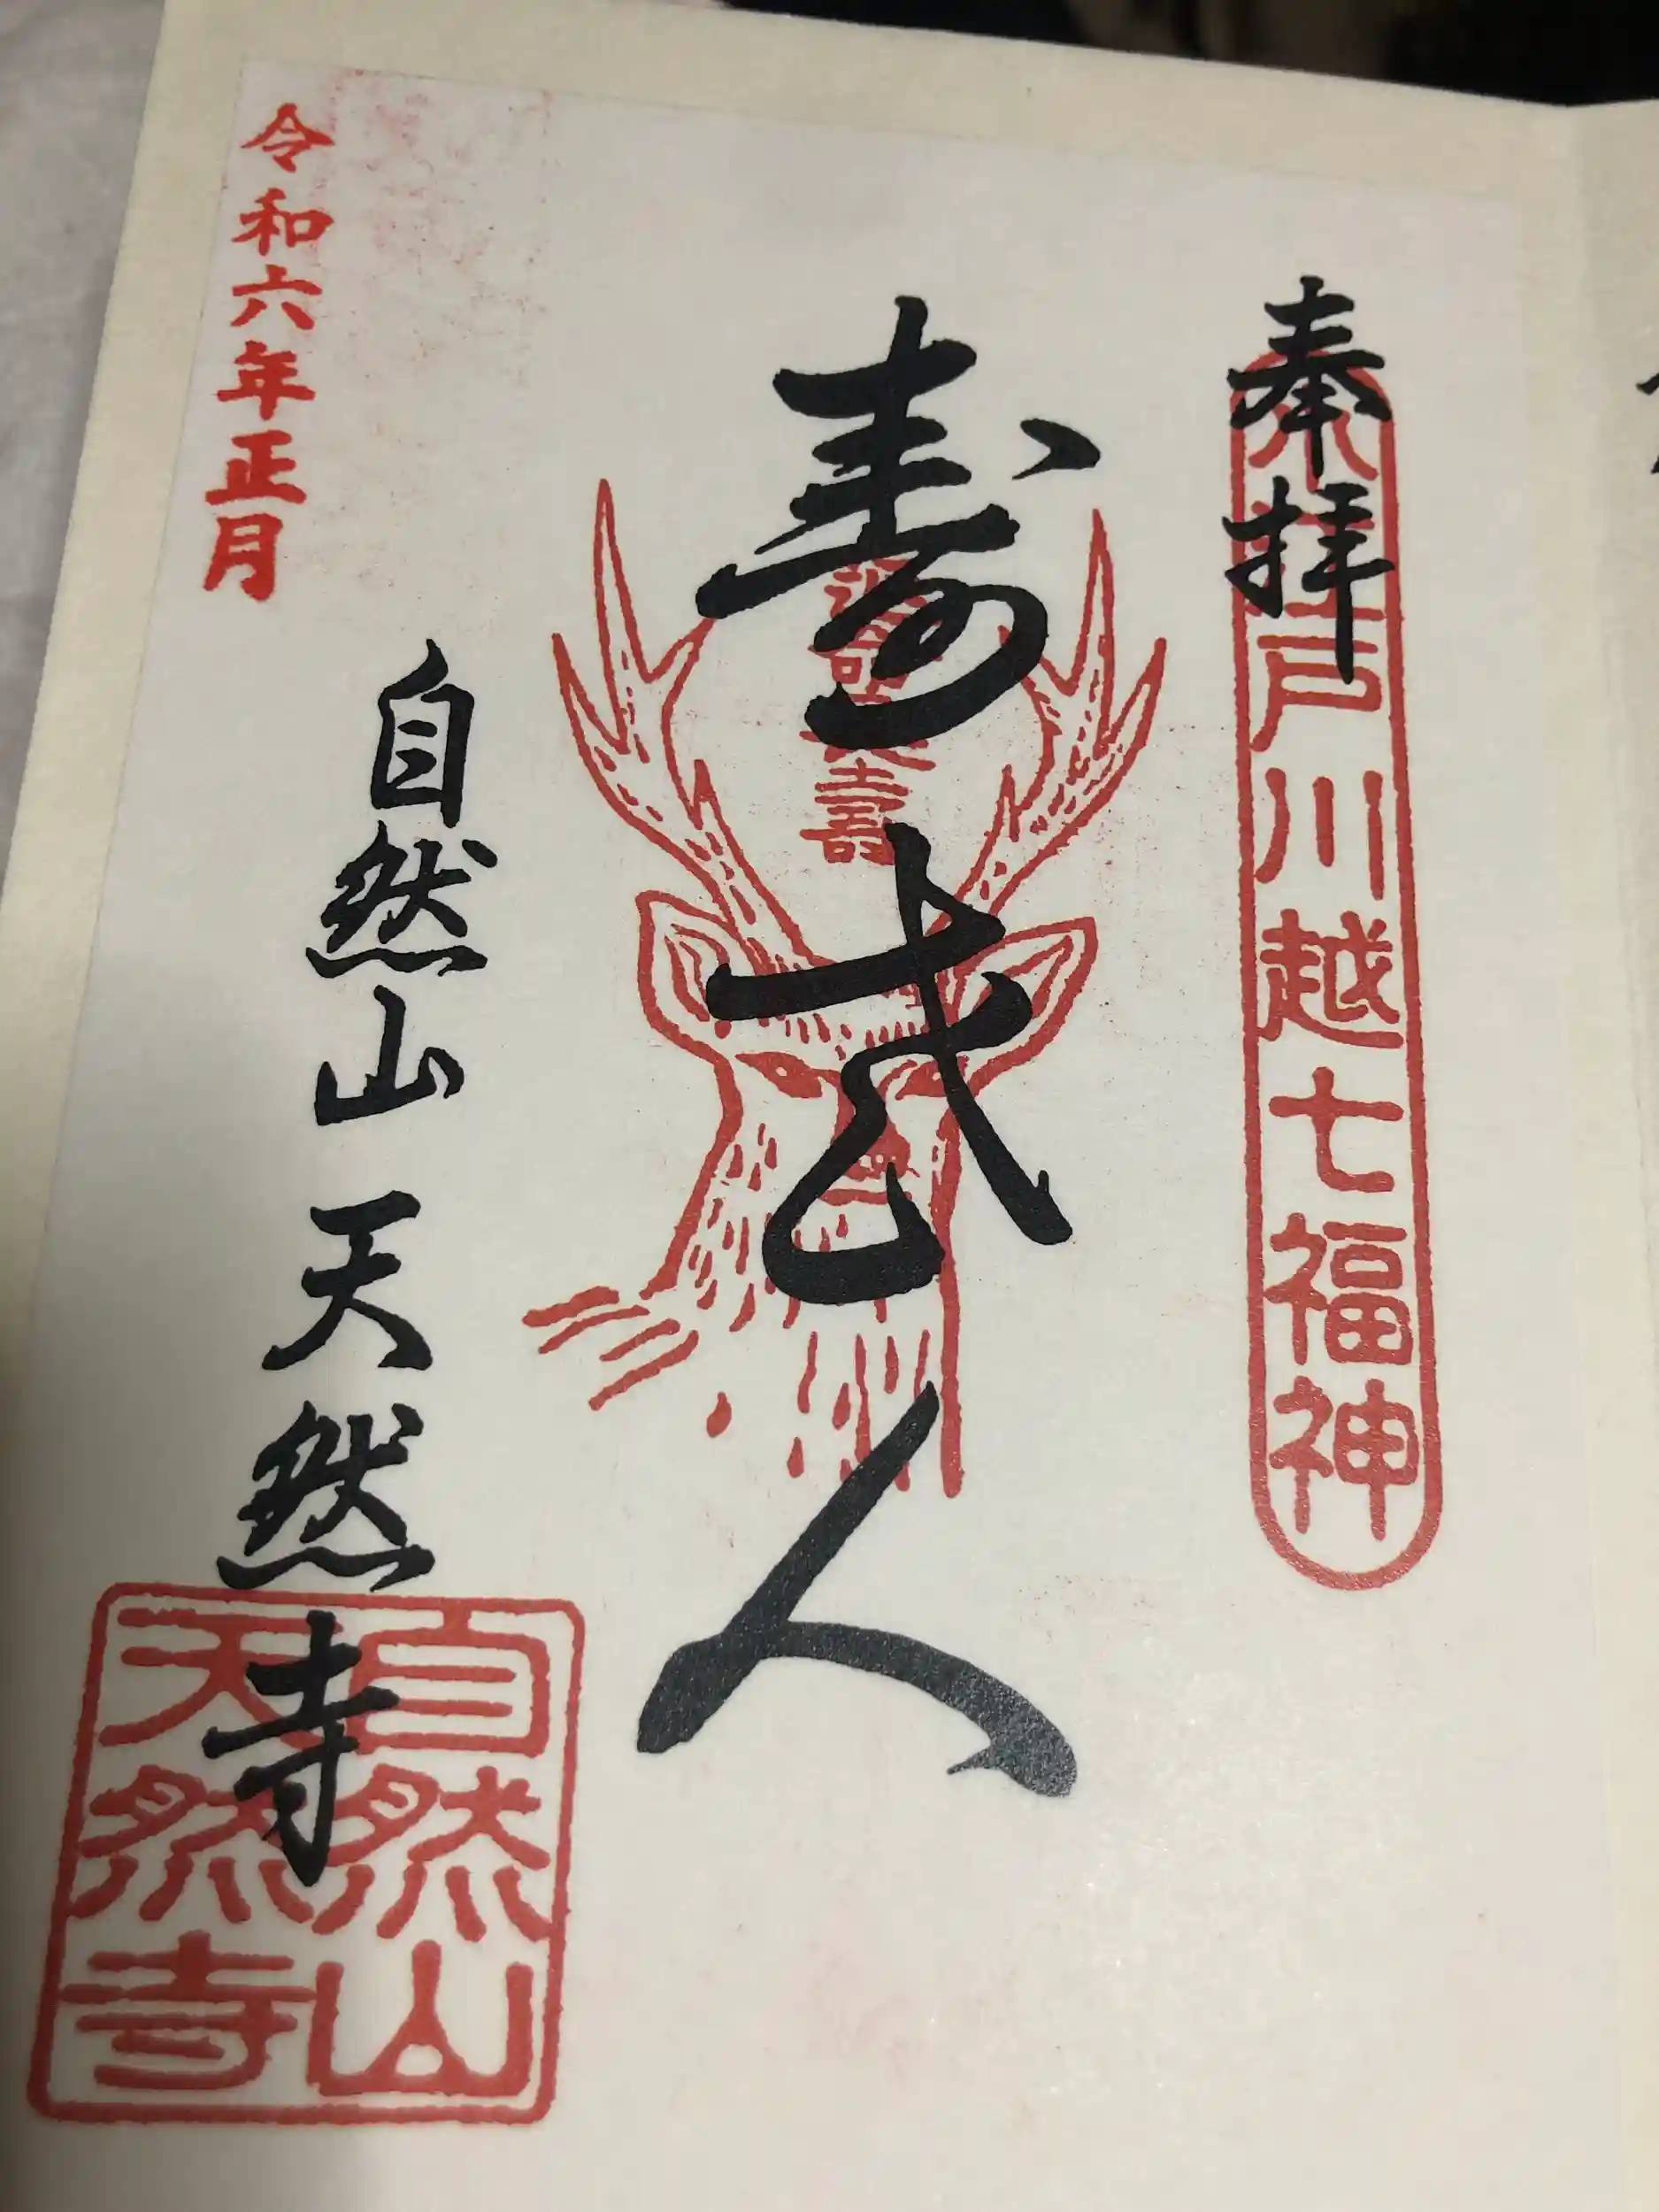 奉拝
小江戸川越七福神
寿老人
壽
自然山 天然寺
自然山
天然寺
令和六年正月